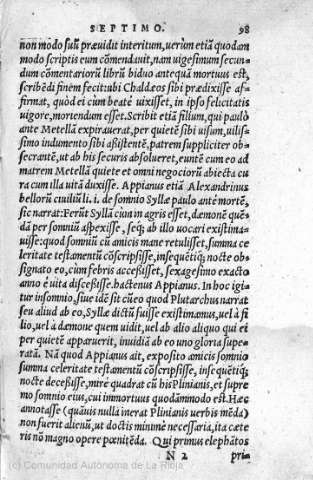 SEPTIMO. 98
non modo suũ præuidit interitum, uerùm etiã quodam
modo scriptis eum cõmendauit, nam uigesimum secun-
dum cõmentariorũ librũ biduo antequã mortuus est,
scribẽdi finẽm fecit: ubi Chaldæos sibi prædixisse af-
firmat, quòd ei cùm beatè uixisset, in ipso felicitatis
uigore, mortendum esset. Scribit etiã filium, qui paulò
ante Metellã expirauerat, per quietẽ sibi uisum, uilis-
simo indumento sibi aßistentẽ, patrem suppliciter ob-
secrantẽ, ut ab his securis absolueret, euntẽ cum eo ad
matrem Metellã quiete et omni negociorũ abiecta cu
ra cum illa uitã duxisse. Appianus etiã Alexandrinus
bellorũ ciuiliũ li. i. de somnio Syllæ paulo ante mortẽ,
sic narrat: Ferũt Syllã cùm in agris esset, dæmonẽ quẽ-
dã per somniũ aspexisse, seq; ab illo uocari existima-
uisse: quod somniũ cũ amicis mane retulisset, summa ce
leritate testamentũ cõscripsisse, insequẽtiq; nocte ob-
signato eo, cùm febris accesisset, sexagesimo exacto
anno è uita discessisse. hactenus Appianus. In hoc igi-
tur insomnio, siue idẽ sit cũ eo quod Plutarchus narrat
seu aliud ab eo, Syllæ dictũ suisse existimamus, uel à fi
lio, uel à dæmone quem uidit, uel ab alio aliquo qui ei
per quietẽ apparuerit, inuidiã ab eo uno gloria supe-
ratã. Nã quod Appianus ait, exposito amicis somnio
summa celeritate testamentũ cõscripsisse, insequẽtiq;
nocte decesisse, mirè quadrat cũ his Plinianis, et supre
mo somnio eius, cui immortuus quodãmodo est. Hæc
annotasse (quãuis nulla inerat Plinianis uerbis mẽda)
non fuerit alienũ, ut doctis minimè necessaria, ita cæte
ris nõ magno opere pœnitẽda. Qui primus elephãtos
N 2 pri-
(c) Comunidad Autónoma de La Rioja